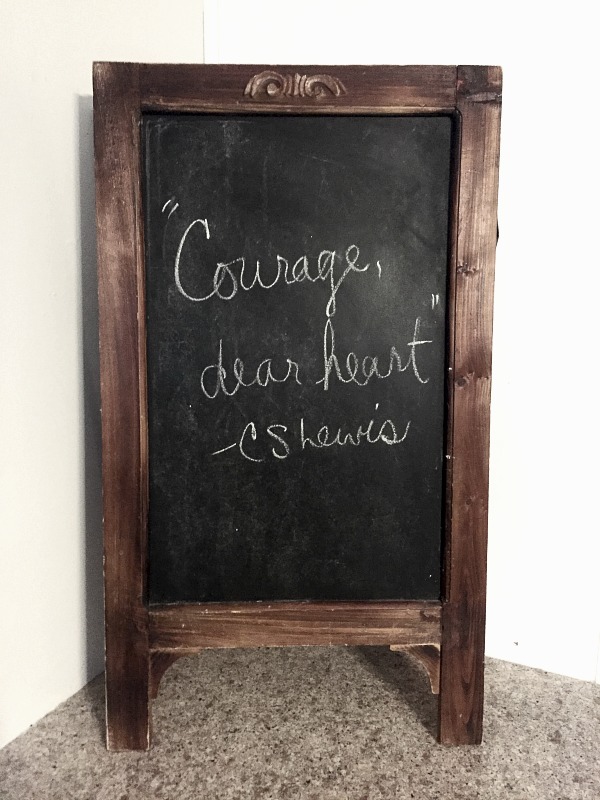 "Courage,
dear heart"
-CS Lewis